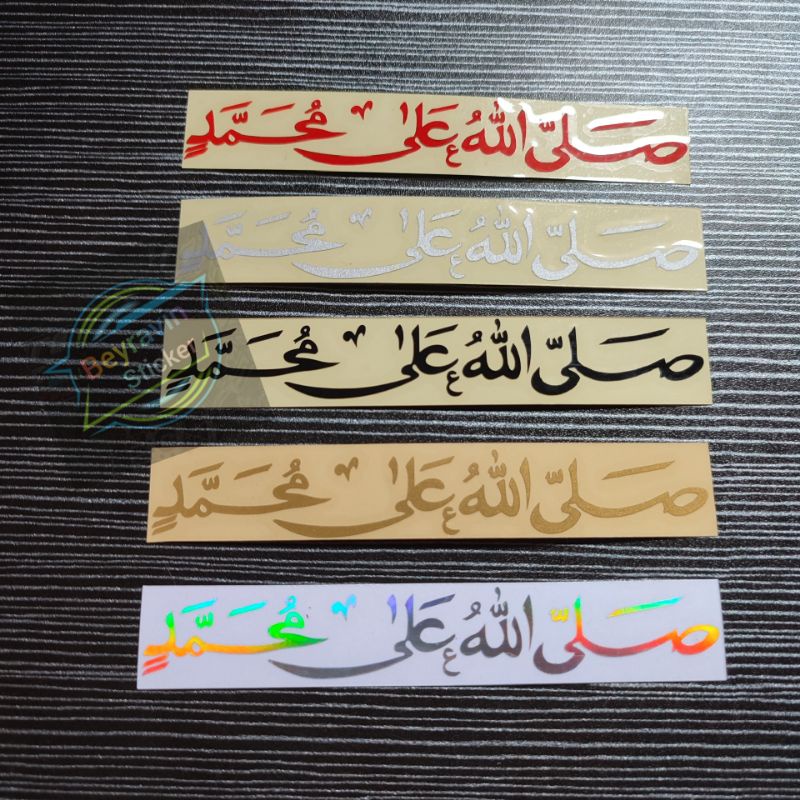 صَلَّى اللهُ عَلَى مُحَمَّدٍ
صَلَّى اللهُ عَلَى مُحَمَّدٍ
Beyravin
Sticker
صَلَّى اللهُ عَلَى مُحَمَّدٍ
صَلَّى اللهُ عَلَى مُحَمَّدٍ
صَلَّى اللهُ عَلَى مُحَمَّدٍ